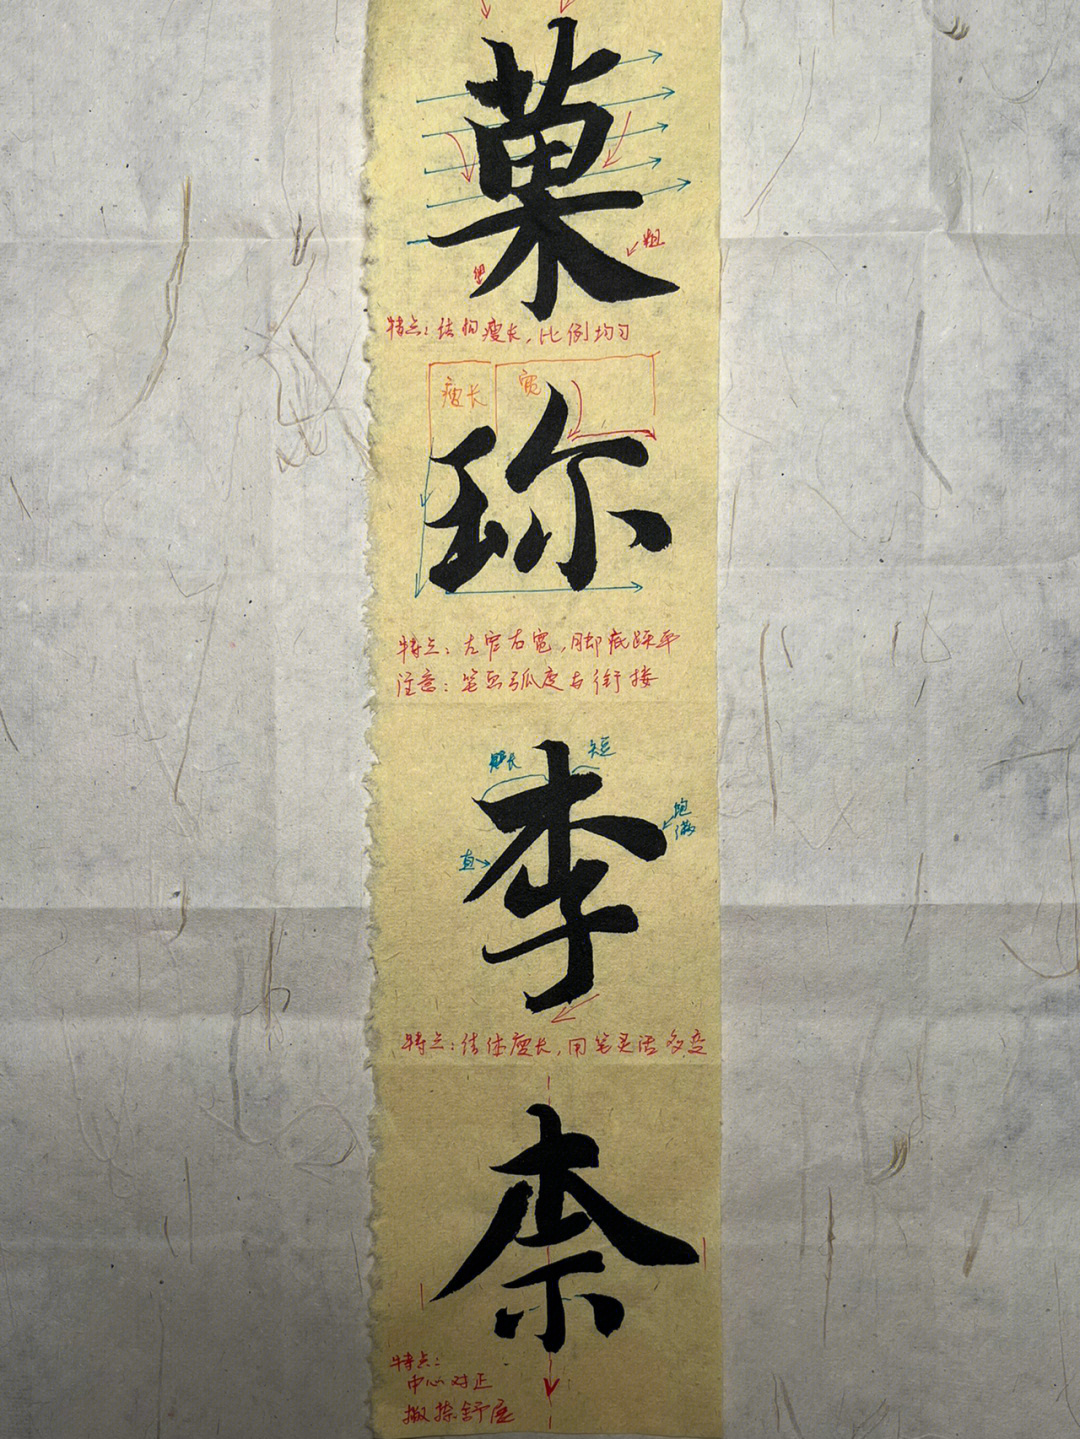 菓
粗
细
特点：结构瘦长，比例均匀
瘦长 宽
珎
特点：左窄右宽，脚底踩平
注意：笔画弧度与衔接
长 短
李
饱满
直
特点：结体瘦长，用笔灵活多变
柰
特点：
中心对正
撇捺舒展